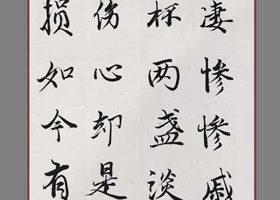 凄惨惨戚
杯两盏淡
伤心却是
损如今有